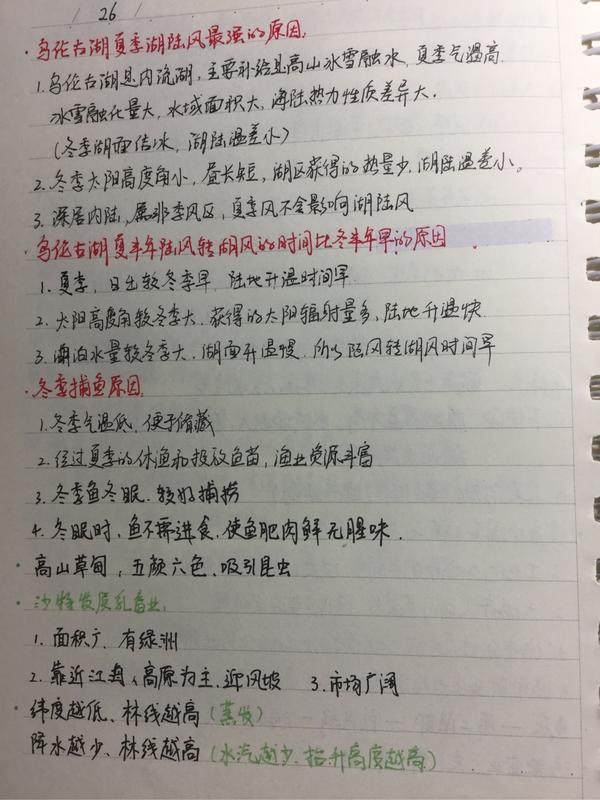 26
· 乌伦古湖夏季湖陆风最强的原因.
1. 乌伦古湖是内流湖，主要补给是高山冰雪融水，夏季气温高.
冰雪融化量大，水域面积大，海陆热力性质差异大.
(冬季湖面结冰，湖陆温差小)
2. 冬季太阳高度角小，昼长短，湖区获得的热量少，湖陆温差小。
3. 深居内陆，属非季风区，夏季风不会影响湖陆风
· 乌伦古湖夏半年陆风转湖风的时间比冬半年早的原因.
1. 夏季，日出较冬季早，陆地升温时间早
2. 太阳高度角较冬季大. 获得的太阳辐射量多、陆地升温快
3. 湖泊水量较冬季大. 湖面升温慢. 所以陆风转湖风时间早
· 冬季捕鱼原因.
1. 冬季气温低，便于储藏
2. 经过夏季的休渔和投放鱼苗，渔业资源丰富
3. 冬季鱼冬眠. 较好捕捞
4. 冬眠时，鱼不需进食. 使鱼肥肉鲜无腥味.
· 高山草甸，五颜六色. 吸引昆虫
· 沙特发展乳畜业.
1. 面积广、有绿洲
2. 靠近江海、高原为主、迎风坡 3. 市场广阔
· 纬度越低、林线越高 (蒸发)
降水越少、林线越高 (水汽越少. 抬升高度越高)